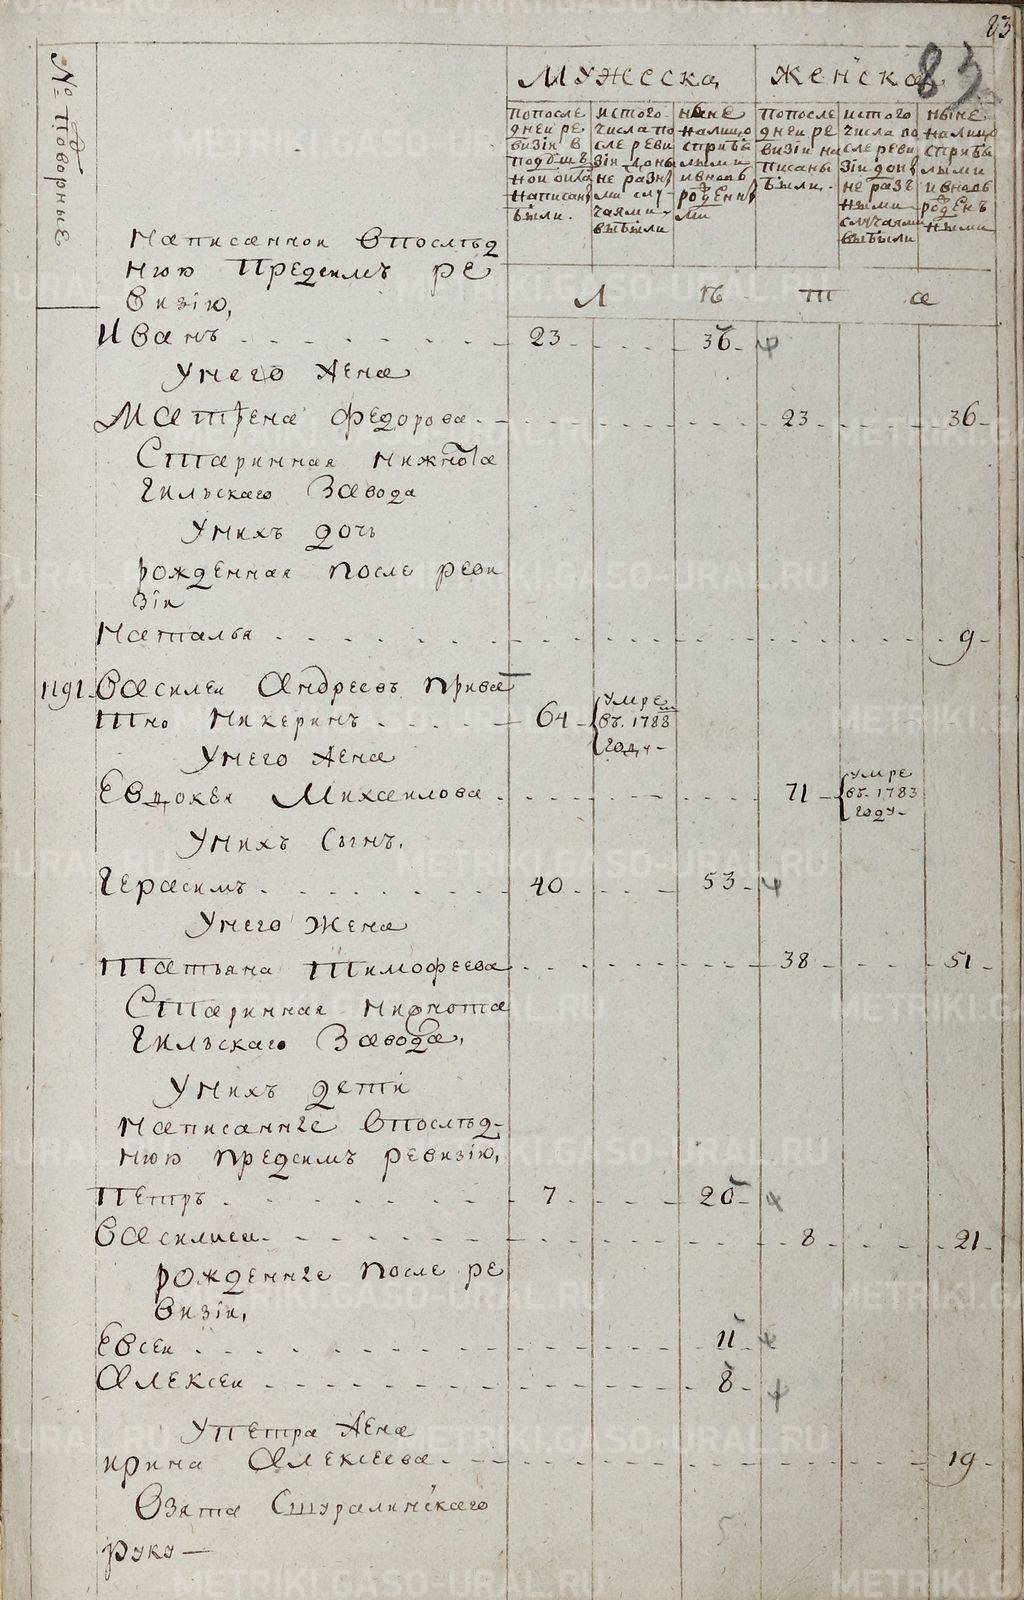 83
83
№ подворные
Мужеска
Женска
попосле
дней ре
визіи в
писаны
были.
изтого
числа по
сле реви
зіи
чаями
выбыли
ныне
налицо
сприбы
лыми
ивновь
рожденн
ми
попосле
дней ре
визіи на
писаны
были.
изтого
числа по
сле реви
зіи
случаями
выбыли
ныне
налицо
сприбы
лыми
ивновь
рожденъ
ными
Л ѣ т а
написанной впослѣд
нюю предсимъ ре
визію,
Иванъ 23 36
Унего жена
Матрена Федорова 23 36
Старинная нижнота
гильскаго Завода
Унихъ дочь
рожденная после реви
зіи
Наталья 9
1191 Василеи Андреевъ привѣ
тно Никеринъ 64 умре въ 1788 году
Унего жена
Евдокея Михаилова 71 умре въ 1783 году
Унихъ Сынъ.
Герасимъ 40 53
Унего Жена
Татьяна Тимофеева 38 51
Старинная нижнота
гильскаго Завода,
Унихъ дети
написанные впослѣд
нюю предсимъ ревизію,
Петръ 7 20
Василиса 8 21
рожденные после ре
визіи,
Евсеи 11
Алексеи 8
Упетра жена
ирина Алексеева 19
Взята Сшуралинскаго
руку
METRIKI.GASO-URAL.RU